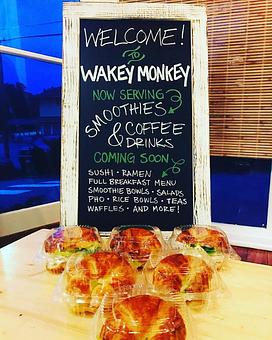 WELCOME!
TO
WAKEY MONKEY
NOW SERVING
SMOOTHIES
& COFFEE
DRINKS
COMING SOON
SUSHI • RAMEN
FULL BREAKFAST MENU
SMOOTHIE BOWLS • SALADS
PHO • RICE BOWLS • TEAS
WAFFLES • AND MORE!